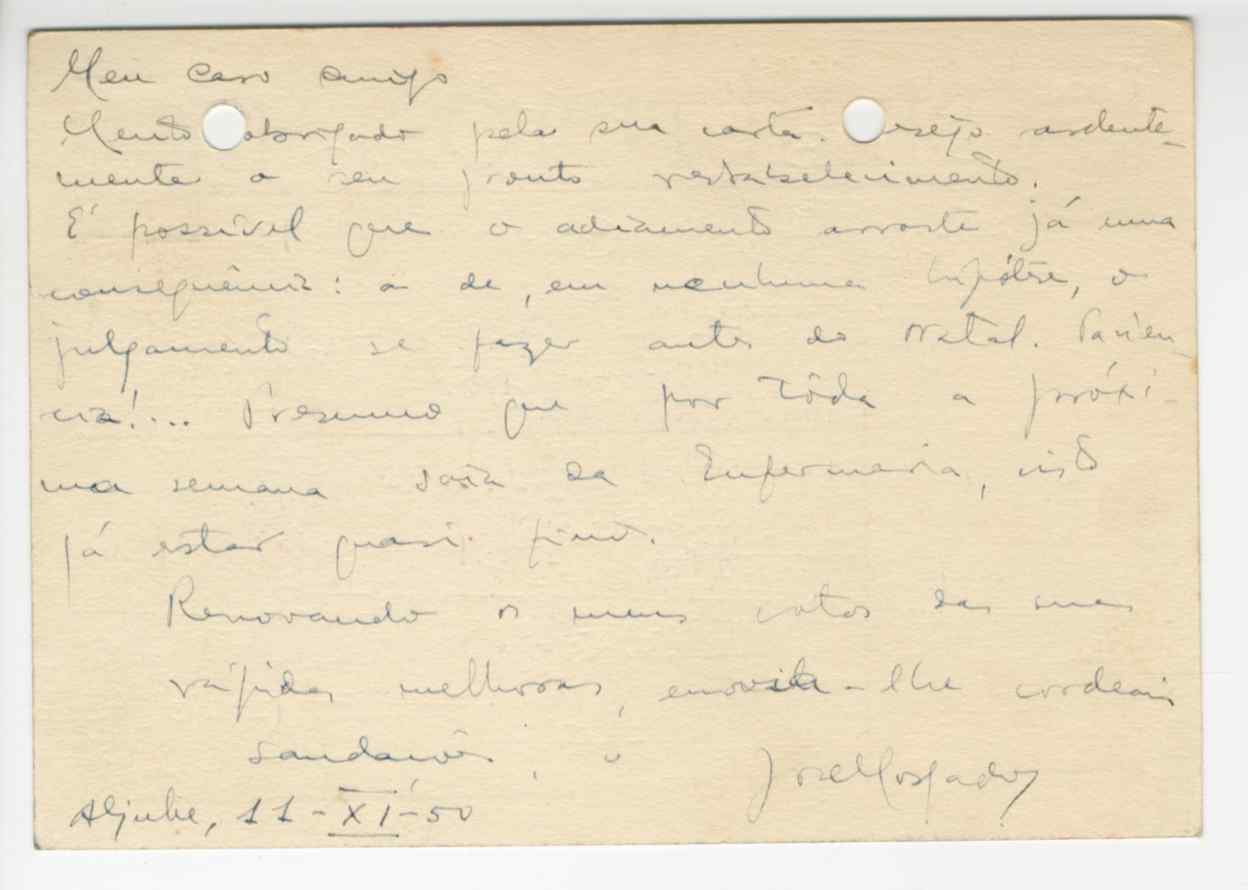 Meu caro amigo
Muito obrigado pela sua carta. Desejo ardente-
mente o seu pronto restabelecimento.
É possível que o adiamento arraste já uma
consequência: a de, em nenhuma hipótese, o
julgamento se fazer antes do Natal. Paciên-
cia!... Presumo que por tôda a próxi-
ma semana saia da Enfermaria, visto
já estar quasi fino.
Renovando os meus votos das suas
rápidas melhoras, envia-lhe cordeais
saudações, o José Morgado
Aljube, 11-XI-50